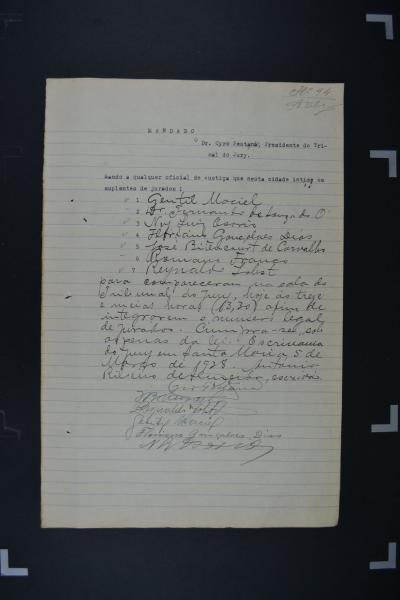 Nº 94
MANDADO
O Dr. Cyro Pestana, Presidente do Tri-
nal do Jury.
Mando a qualquer oficial de Justiça que nesta cidade intime os
suplentes de jurados :
1 Gentil Maciel
2 Dr. Fernando de
3 Ruy Luiz Osorio
4 Floriano Gonçalves Dias
5 José Bitencourt de Carvalho
6 Romano Franco
7 Reynaldo
para compareceram na sala do
Tribunal do Jury, hoje ás treze
e meias horas (13,30) afim de
integrarem o numero legal
de jurados. Cumpra-se, sob
as penas da lei. Escrivania
do Jury em Santa Maria, 5 de
Março de 1928. Antonio
Ribeiro de Almeida, escrivão.
Reynaldo
Gentil Maciel
Floriano Gonçalves Dias